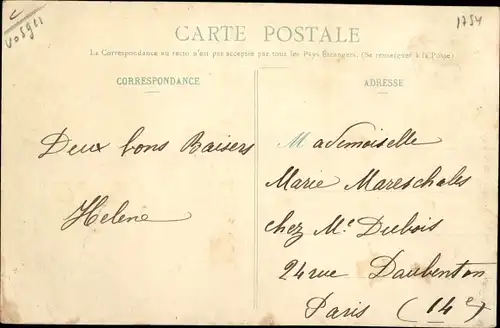 c
Vosges
1754
CARTE POSTALE
La Correspondance au recto n'est pas acceptée par tous les Pays Étrangers. (Se renseigner à la Poste)
CORRESPONDANCE
ADRESSE
Deux bons Baisers
Helene
Mademoiselle
Marie Mareschales
chez Me Dubois
24 rue Daubenton
Paris (14e)